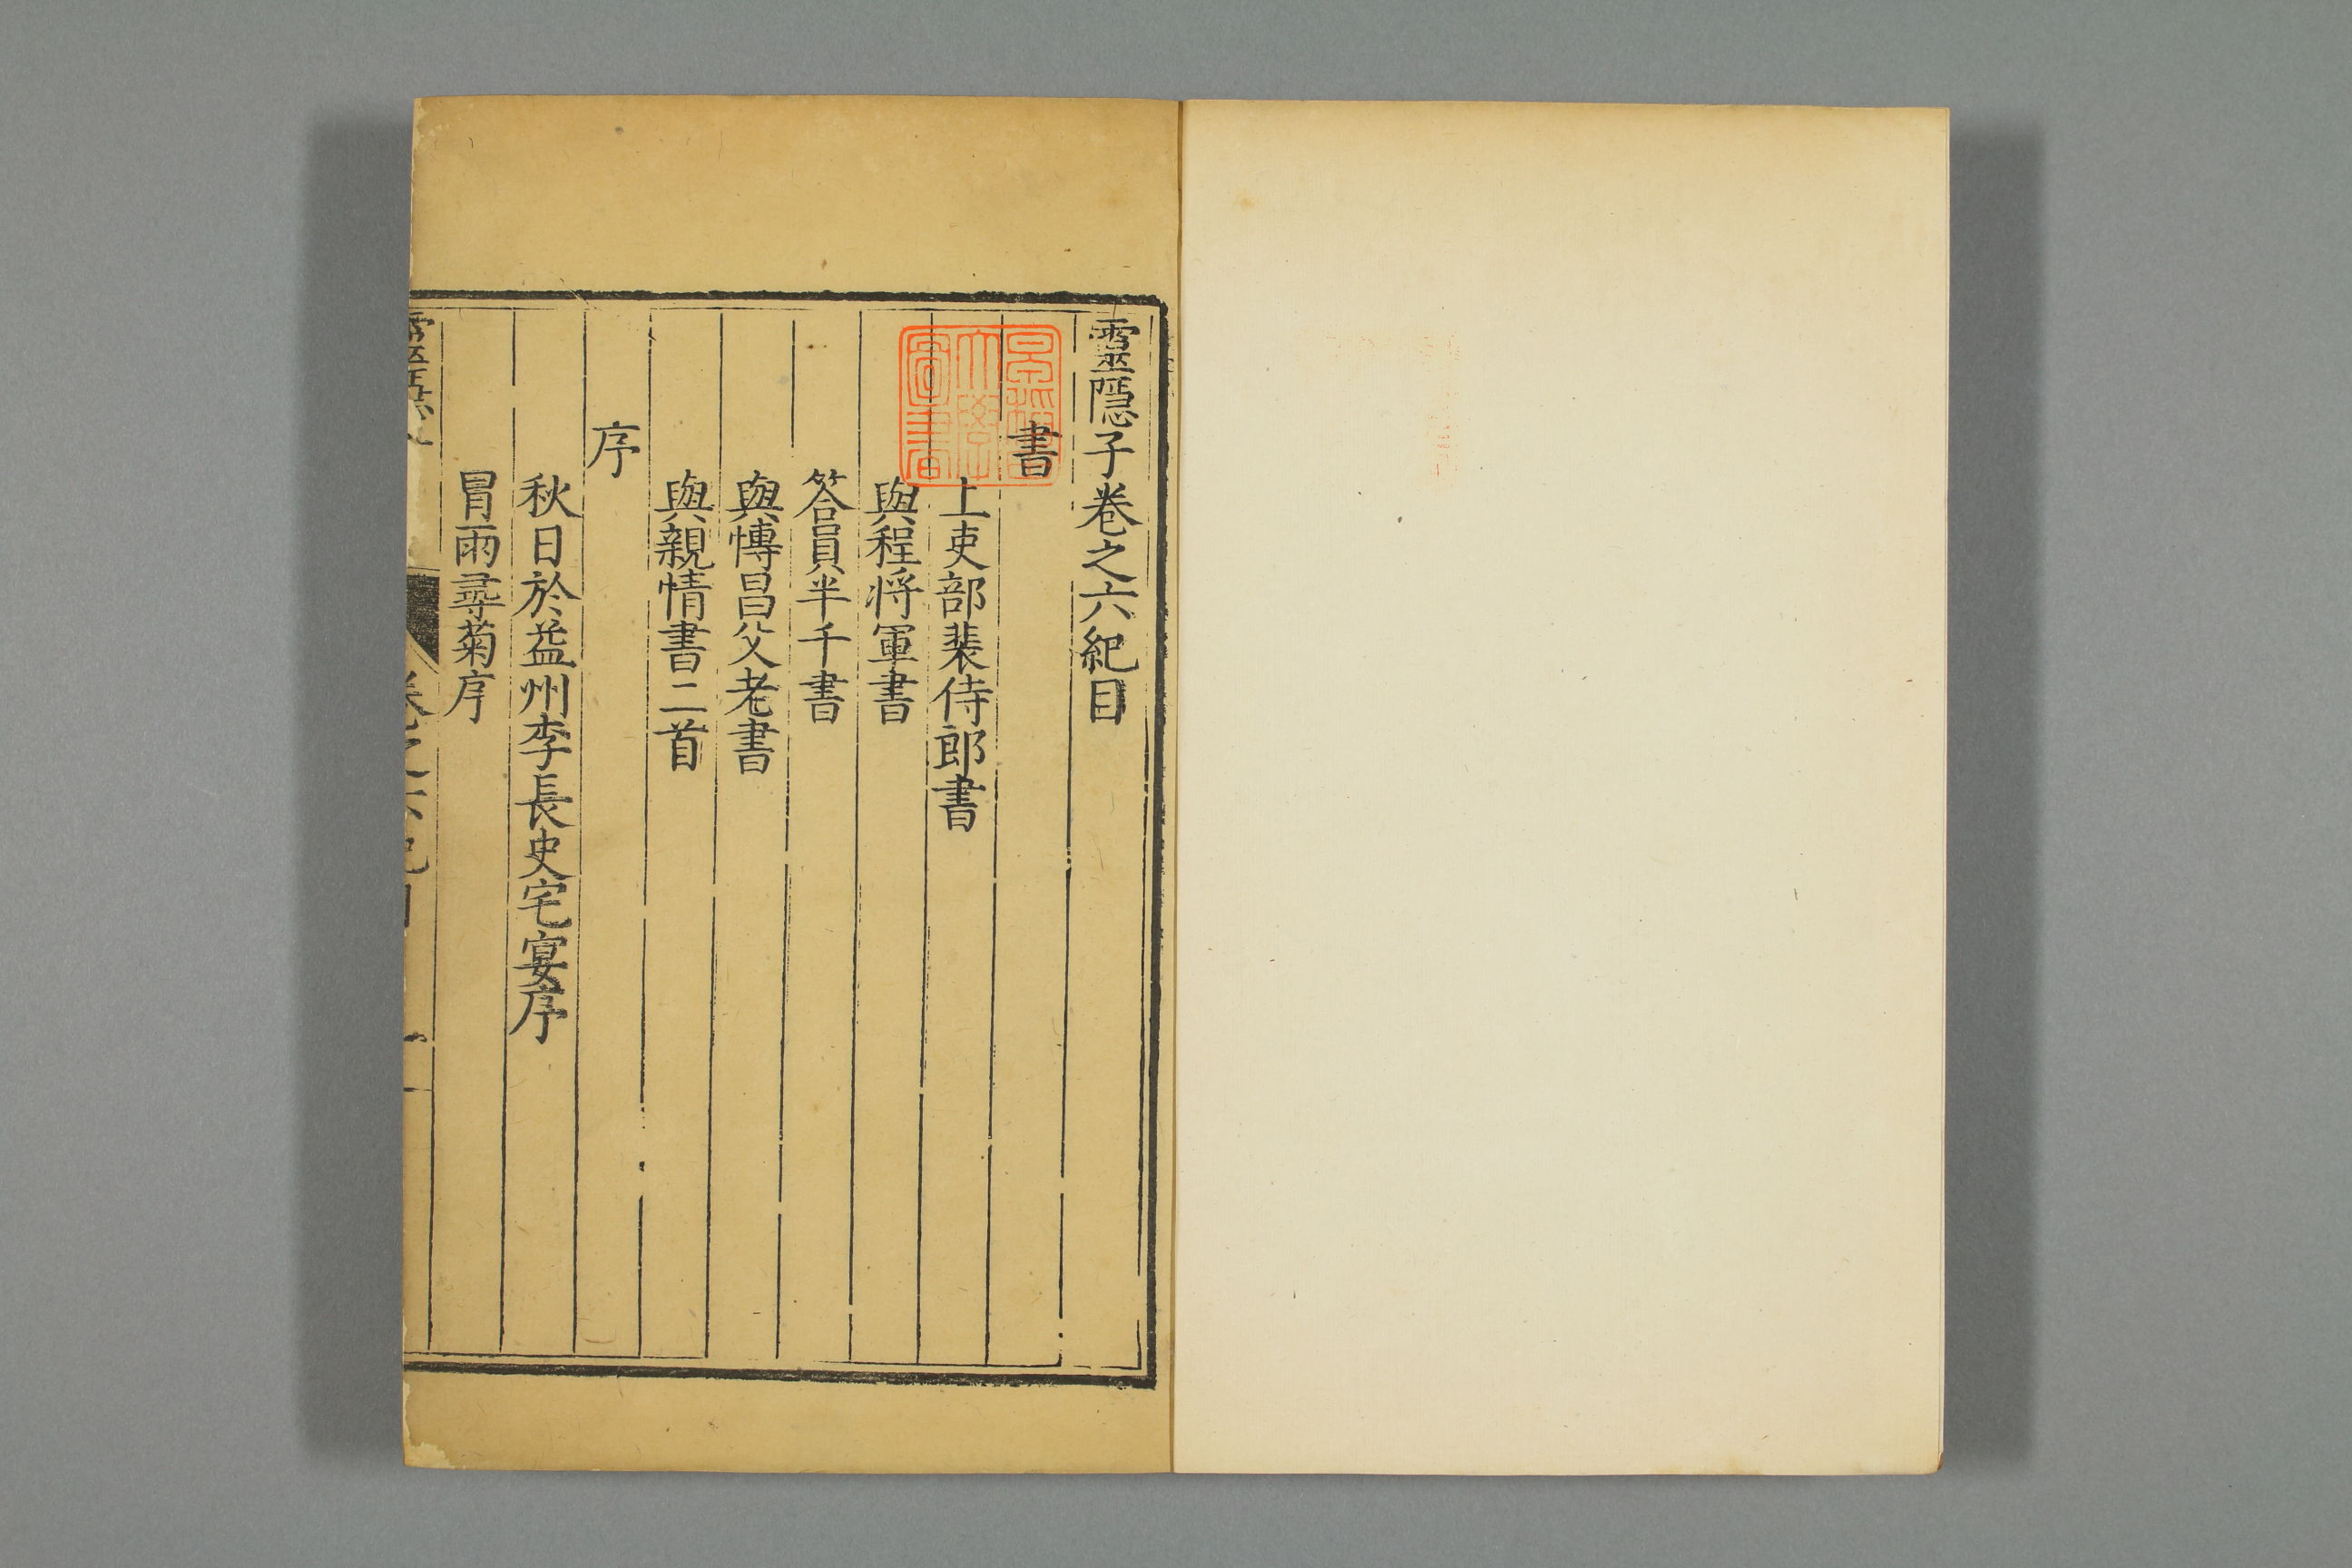 靈隱子卷之六紀目
書
上吏部裴侍郎書
與程将軍書
答員半千書
與慱昌父老書
與親情書二首
序
秋日於益州李長史宅宴序
冒雨尋菊序